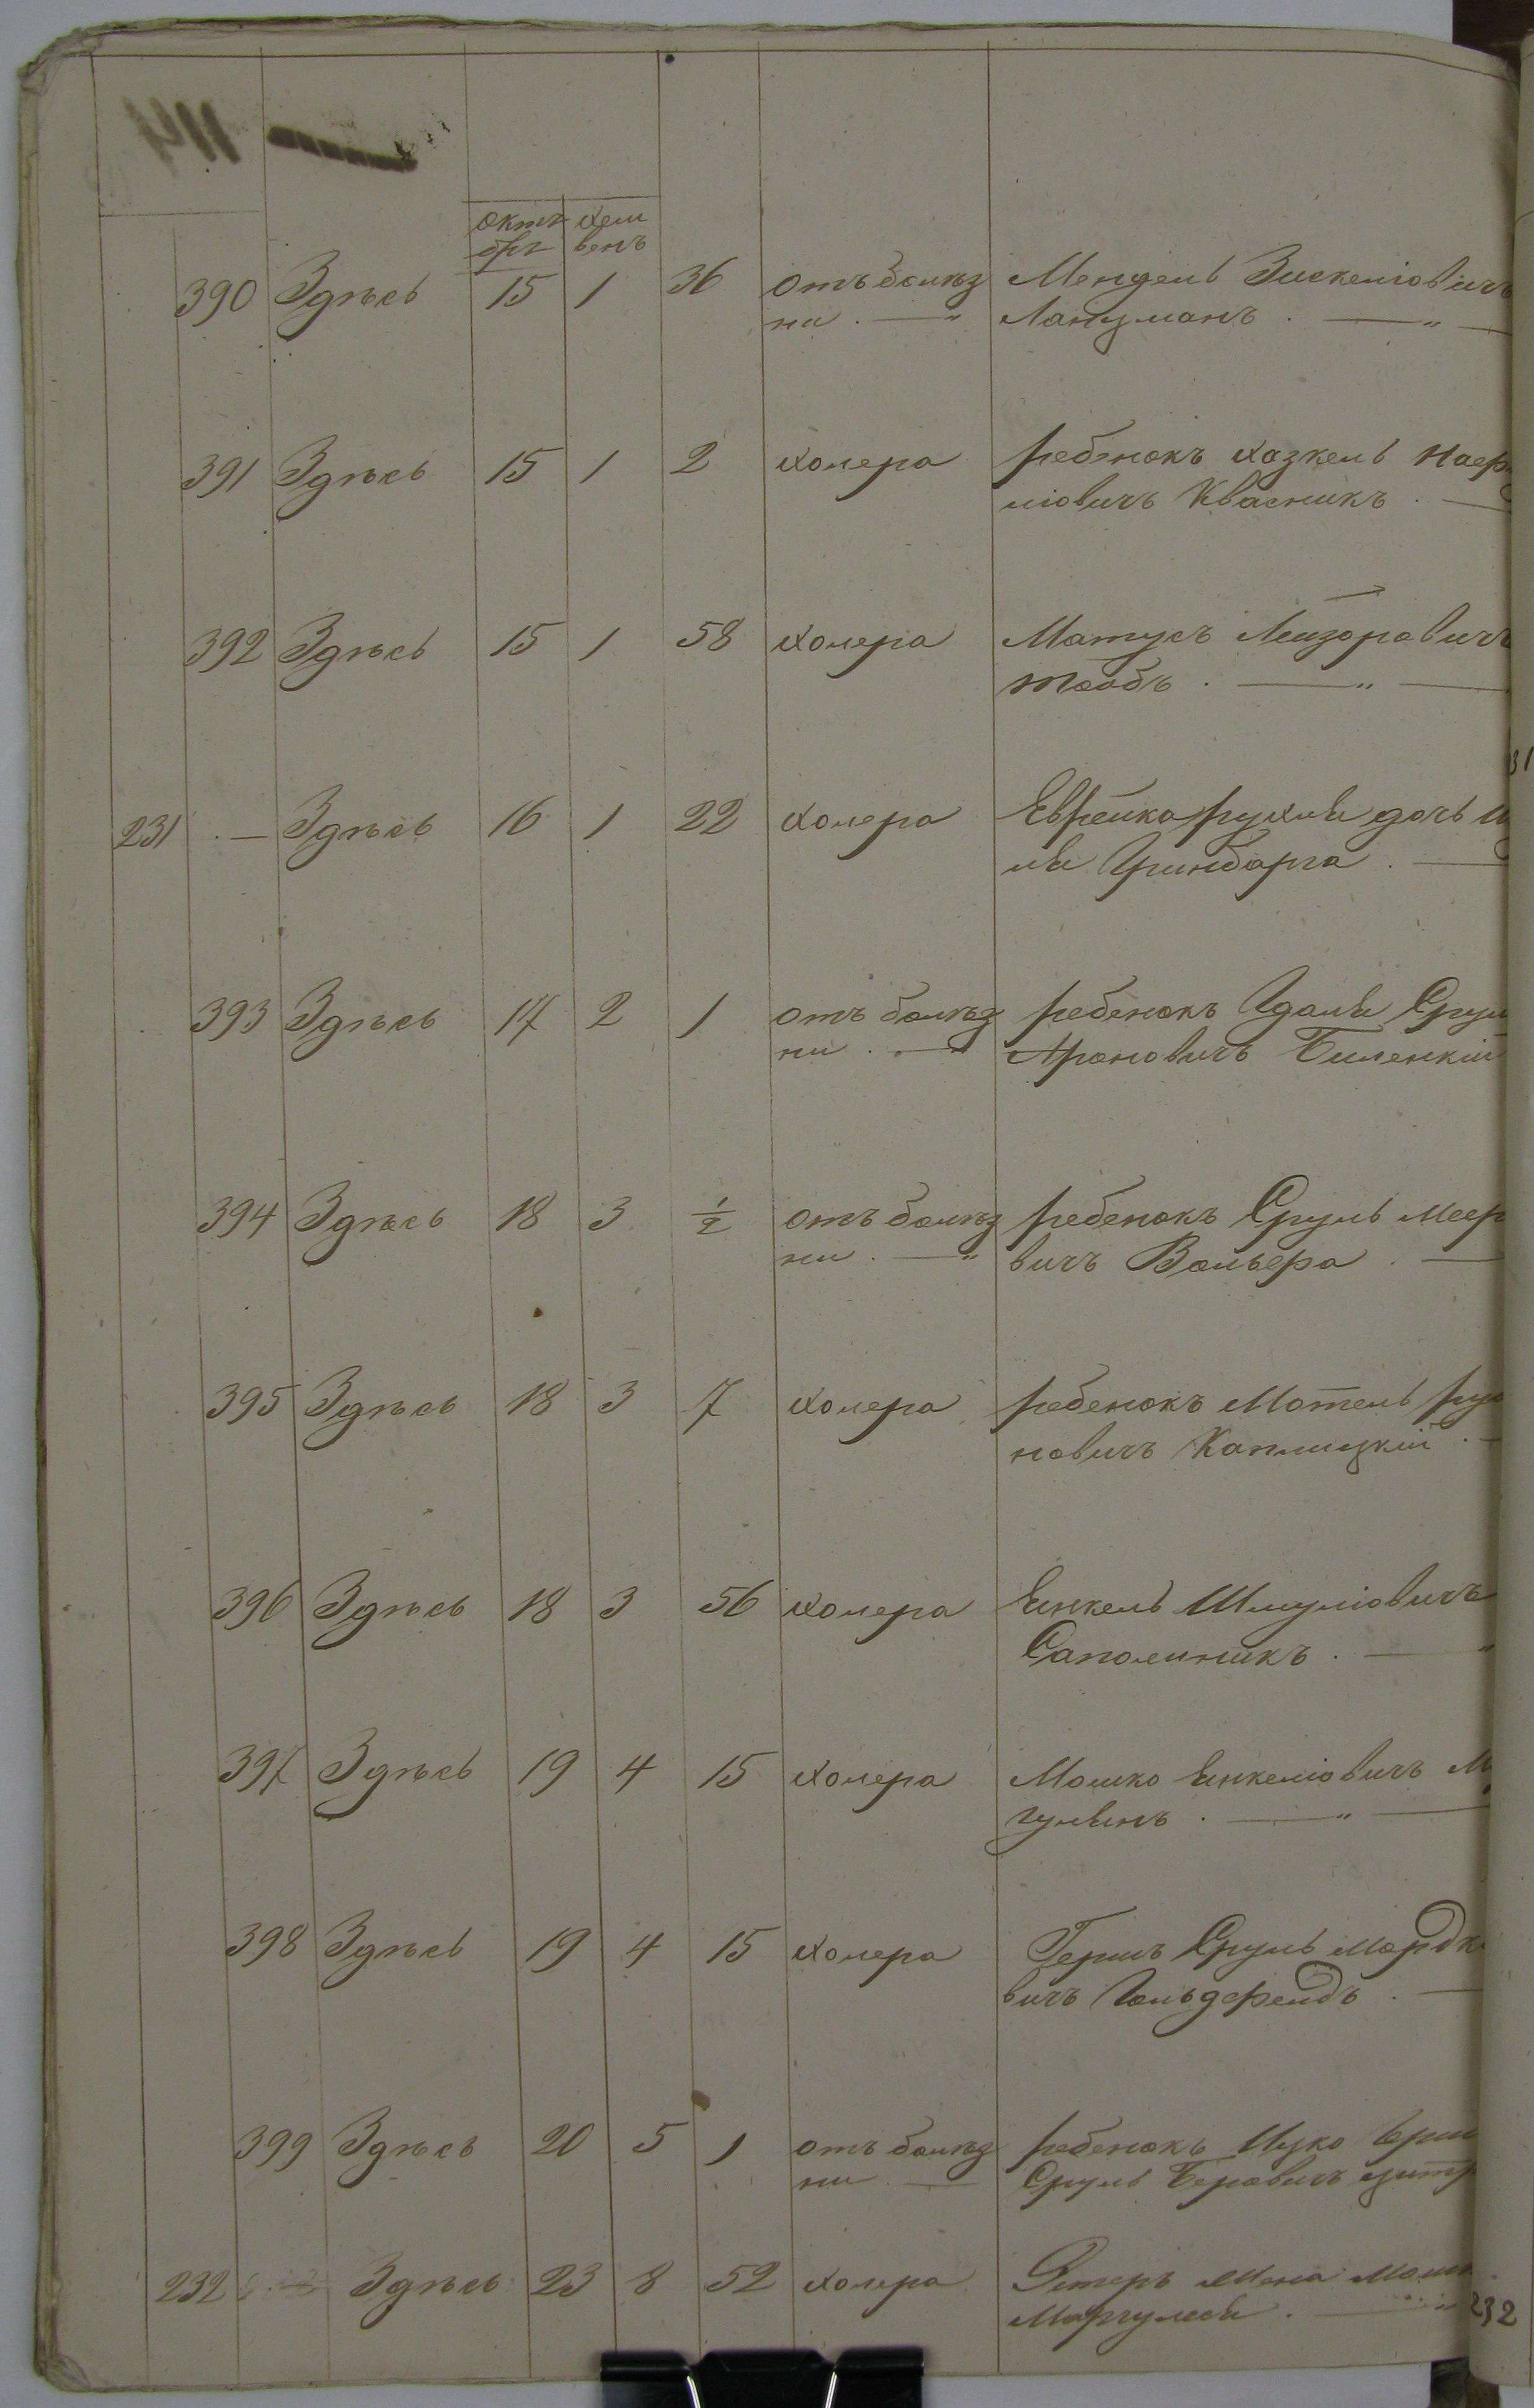 114
окт хеш
бря венъ
390 Здѣсь 15 1 36 отъ болѣз Мендель Зискелiовичъ
ни . — „ Ланцманъ . — „ —
391 Здѣсь 15 1 2 холера ребенокъ хазкель
лiовичъ Квасникъ . —
392 Здѣсь 15 1 58 холера Матусъ Лейзоровичъ
таобъ . — „ —
231 . — Здѣсь 16 1 22 холера Еврейка рухля дочь
ля Гринбарга . —
393 Здѣсь 17 2 1 отъ болѣз ребенокъ Идаля Срул
ни . — Ароновичъ Биленкiй
394 Здѣсь 18 3 1/2 отъ болѣз ребенокъ Сруль меер
ни . — „ вичъ Вольера . —
395 Здѣсь 18 3 7 холера ребенокъ Мотель
новичъ Каплицкiй . —
396 Здѣсь 18 3 56 холера Янкель Шмулiовичъ
Саполникъ . — „
397 Здѣсь 19 4 15 холера Мошко Янкелiовичъ М
гулянъ . — „ —
398 Здѣсь 19 4 15 холера Гершъ Сруль мордк
вичъ . —
399 Здѣсь 20 5 1 отъ болѣз ребенокъ Ицко
ни . — Сруль Беровичъ цитр
232 Здѣсь 23 8 52 холера Эстеръ жена мош
. — „ 232
31